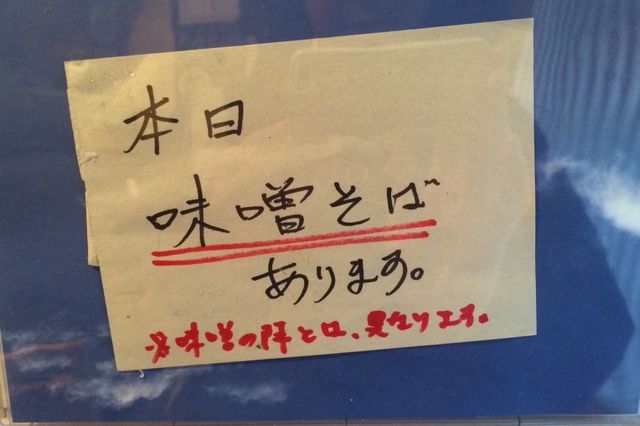 本日
味噌そば
あります。
※味噌の陣とは、異なります。